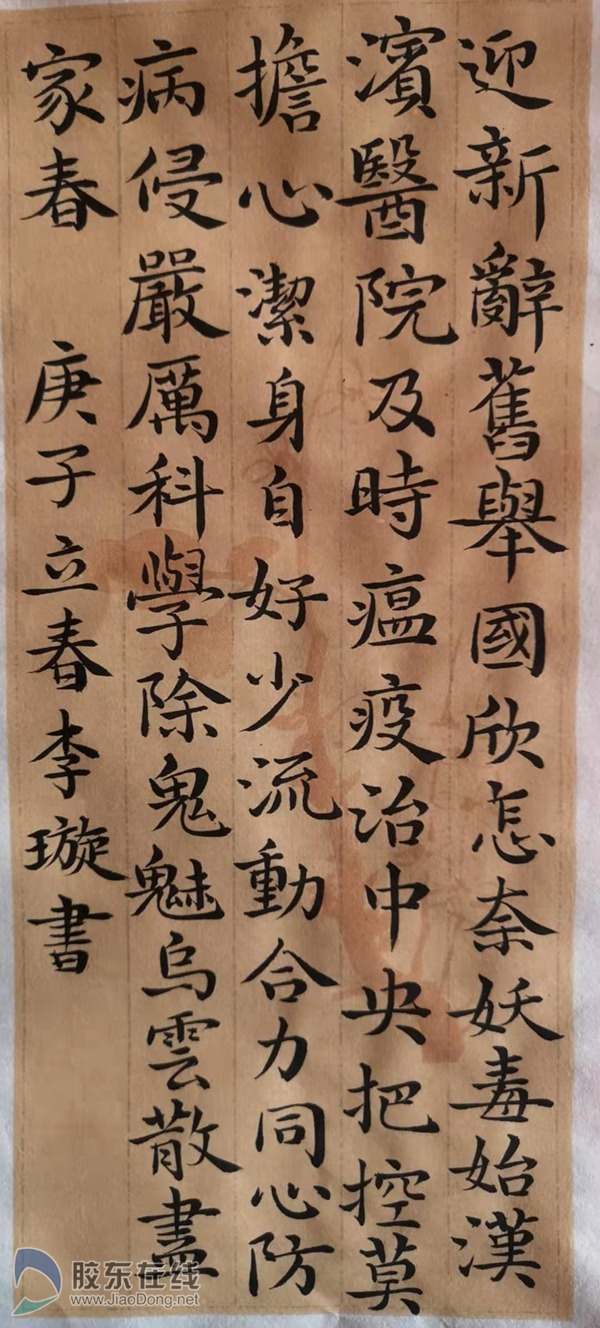 迎新辭舊舉國欣怎奈妖毒始漢
濱醫院及時瘟疫治中央把控莫
擔心潔身自好少流動合力同心防
病侵嚴厲科學除鬼魅烏雲散盡
家春 庚子立春李璇書
胶东在线
www.JiaoDong.net